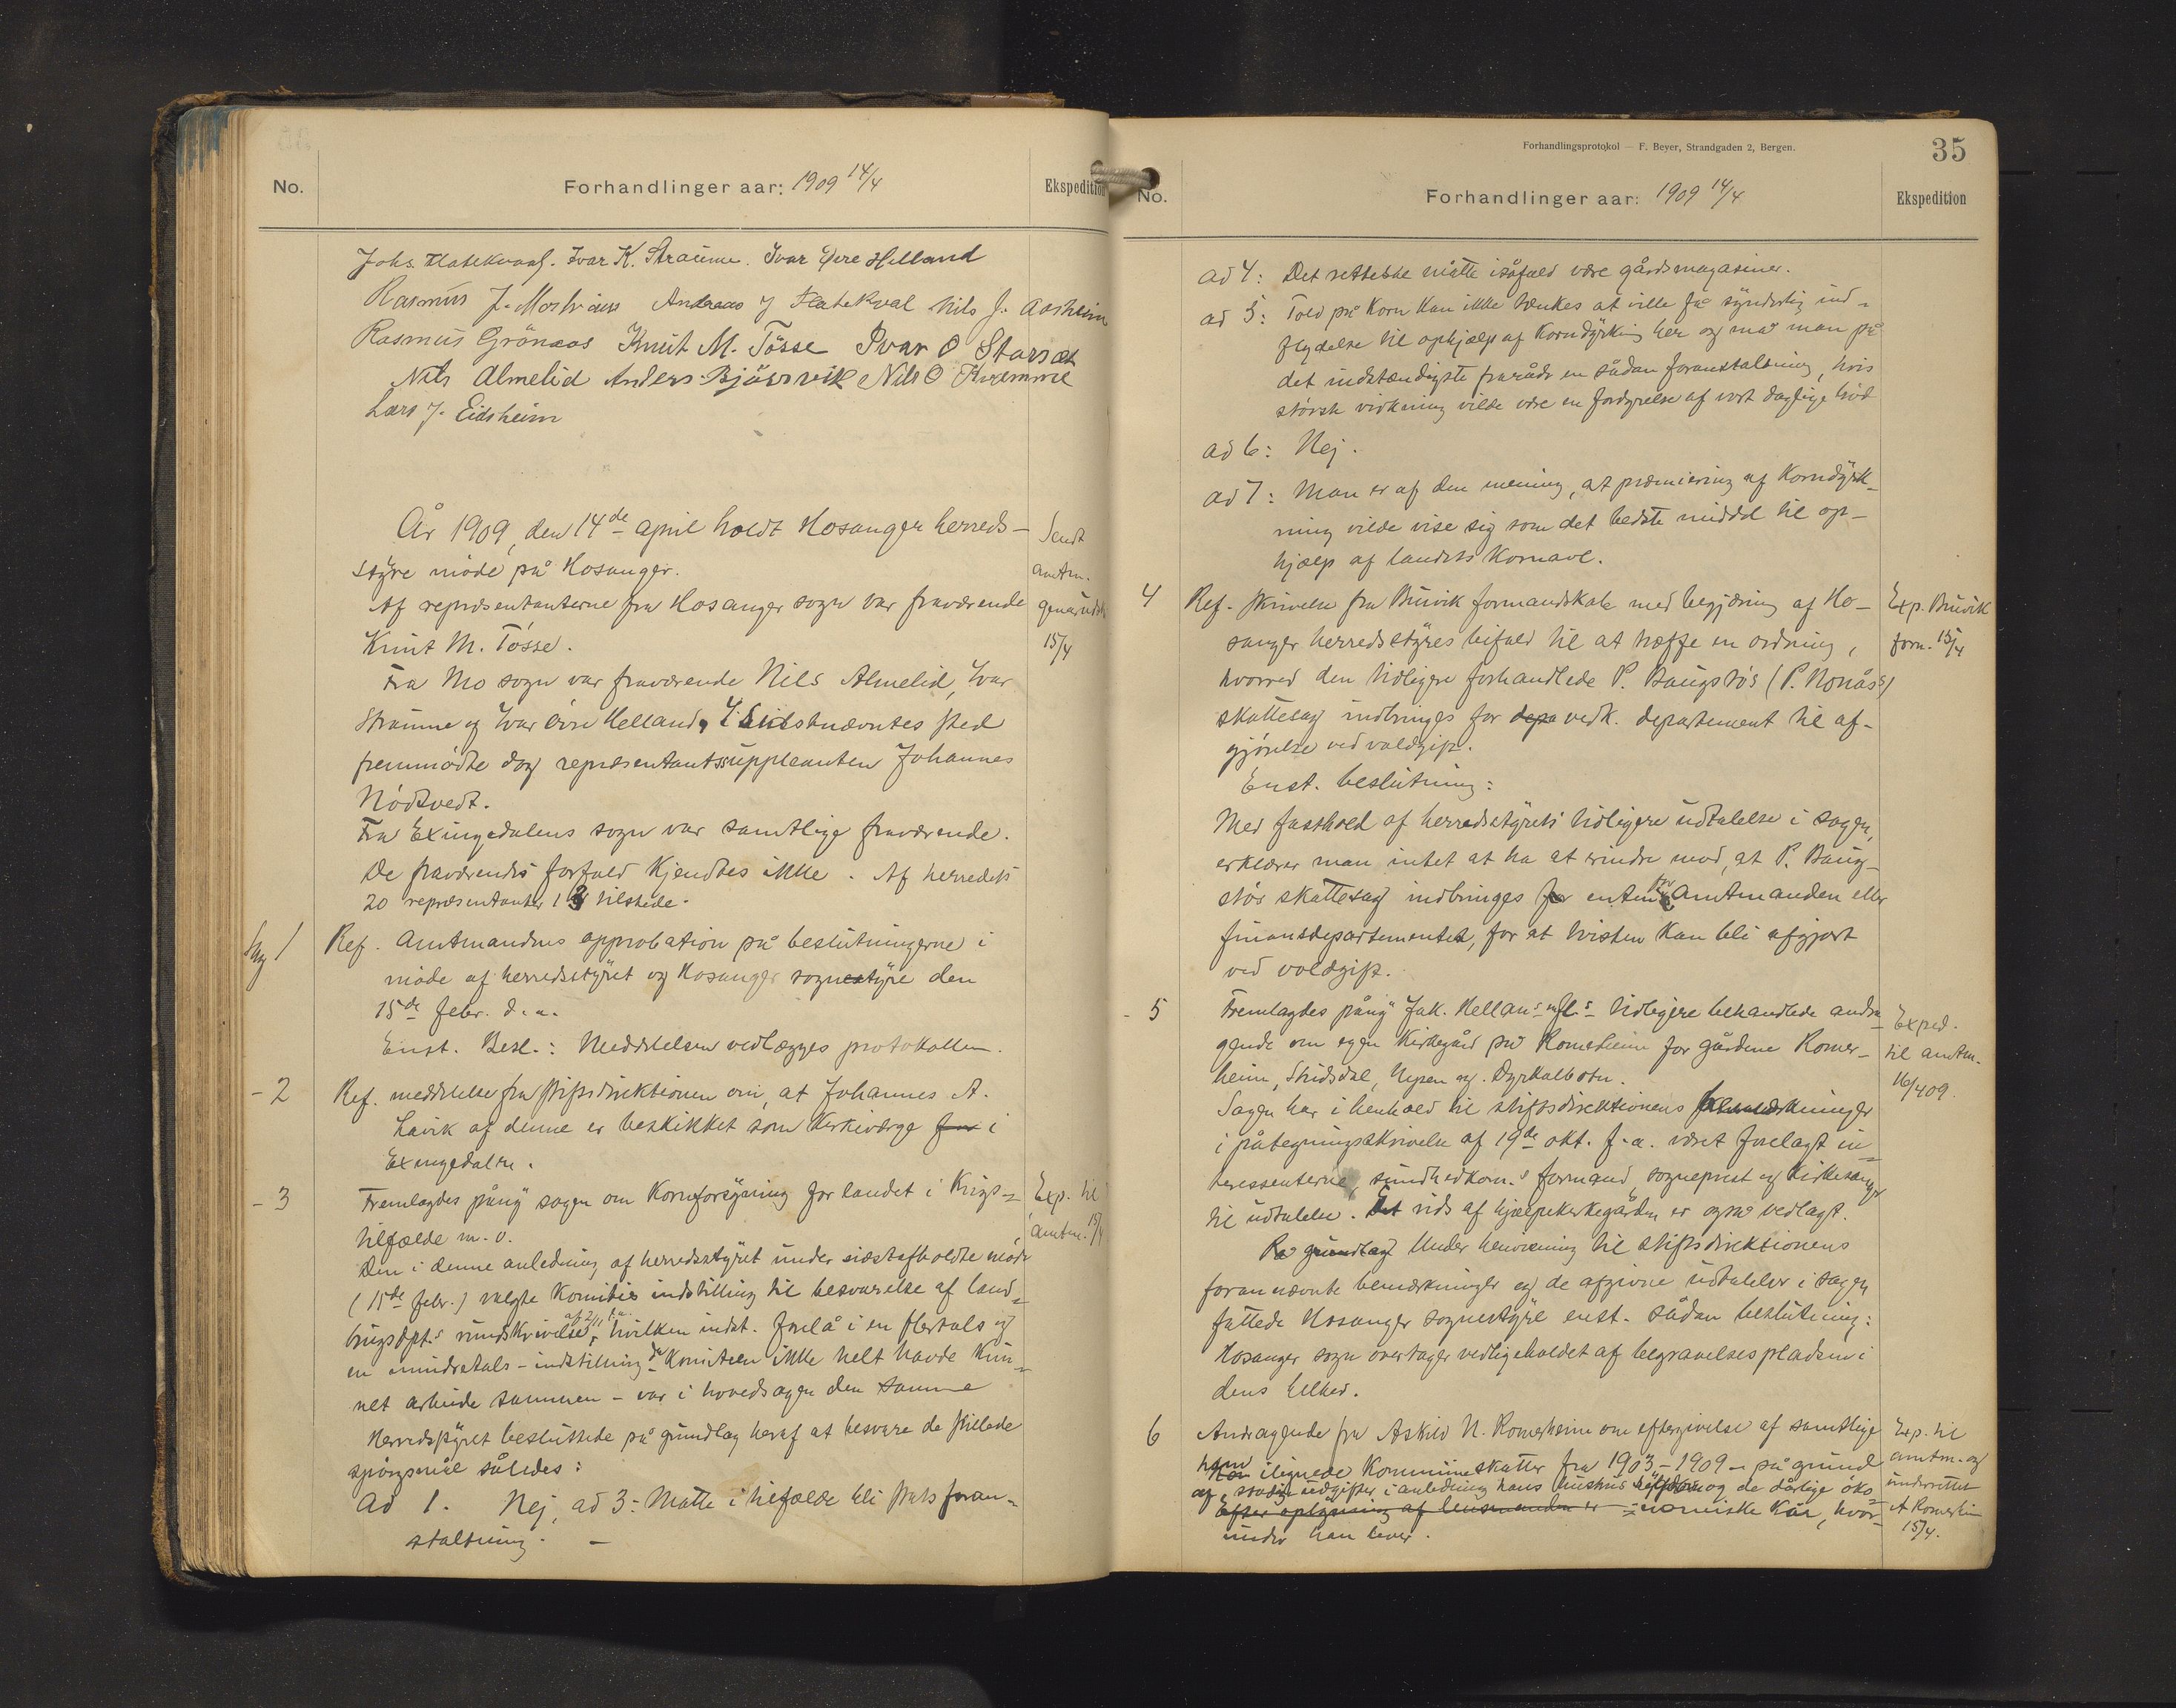 No.
Forhandlinger aar: 1909 14/4
Ekspedition
Johs. Flatekvaal. Ivar K. Straume. Ivar Øvre Helland
Rasmus J. Andreas J Flatekval Nils J. Aasheim
Rasmus Grönaas Knut M. Tösse Ivar O
Nils Almelid Anders Bjørsvik Nils O Kvamme
Lars J. Eidsheim
År 1909, den 14de april holdt Hosanger herreds-
styre møde på Hosanger.
Sendt
amtm.
15/4
Af repræsentanterne fra Hosanger sogn var fraværende
Knut M. Tösse.
Fra Mo sogn var fraværende Nils Almelid, Ivar
Straume og Ivar Øvre Helland, I sidstnævntes sted
fremmødte dog repræsentantsuppleanten Johannes
Nödtvedt.
Fra Exingedalens sogn var samtlige fraværende.
De fraværendes forfald kjendtes ikke. Af herredets
20 repræsentanter 13 tilstede.
Sag 1
Ref. Amtmandens approbation på beslutningerne i
møde af herredsstyret og Hosanger sognestyre den
15de febr. d.a.
Enst. Besl.: Meddelelsen vedlægges protokollen.
- 2
Ref. meddelelse fra stiftsdirektionen om, at Johannes A.
Lavik af denne er beskikket som Kirkeværge for i
Exingedalen.
- 3
Fremlagdes påny sagen om Kornforsyning for landet i Krigs-
tilfælde m.v.
Exp. til
amtm. 15/4
Den i denne anledning af herredsstyret under sidstafholdte møde
(15de febr.) valgte Komites indstilling til besvarelse af land-
brugsdpt.s rundskrivelse, hvilken indst. forelå i en flertals og
en mindretals-indstilling da Komiteen ikke helt havde kun-
net arbeide sammen - var i hovedsagen den samme
Herredsstyret besluttede på grundlag heraf at besvare de stillede
spörgsmål således:
Ad 1. Nej, ad 3- Måtte i tilfælde bli stats foran-
staltning. -
Forhandlingsprotokol — F. Beyer, Strandgaden 2, Bergen.
35
No.
Forhandlinger aar: 1909 14/4
Ekspedition
ad 4: Det retteste måtte isåfald være gårdsmagasiner.
ad 5: Told på Korn Kan ikke tænkes at ville få synderlig ind-
flydelse til ophjælp af Korndyrking her og må man på
det indstændigste fraråde en sådan foranstaltning, hvis
störste virkning vilde være en fordyrelse af vort daglige bröd
ad 6: Nej.
ad 7: Man er af den mening, at præmiering af Korndyrk-
ning vilde vise sig som det bedste middel til op-
hjælp af landets Kornavl.
4
Ref. skrivelse fra Bruvik formandskab med begjæring af Ho-
sanger herredsstyres bifald til at træffe en ordning,
Exp. Bruvik
form. 15/4
hvorved den tidligere forhandlede P. Baugstøs (P. Nonås's)
skattesag indbringes for depa vedk. departement til af-
gjörelse ved voldgift.
Enst. beslutning:
Med fasthold af herredsstyrets tidligere udtalelse i sagen,
erklærer man intet at ha at erindre mod, at P. Baug-
stös skattesag indbringes for enten for Amtmanden eller
finansdepartementet, for at tvisten Kan bli afgjort
ved voldgift.
- 5
Fremlagdes påny Jak. Hellans m.fl.s tidligere behandlede andra-
gende om egen Kirkegård på Romerheim for gårdene Romer-
heim, Skidsdal, Nipen og Dyrkolbotn.
Exped.
til amtm.
16/4 09.
Sagen har i henhold til stiftsdirektionens
i påtegningsskrivelse af 19de okt. f.a. været forelagt in-
teressenterne, sundhedkom.s formand, sogneprest og Kirkesanger
til udtalelse. Det rids af hjælpekirkegården er også vedlagt.
På grundlag Under henvisning til stiftsdirektionens
forannævnte bemærkninger og de afgivne udtalelser i sagen
fattede Hosanger sognestyre enst. sådan beslutning:
Hosanger sogn overtager vedligeholdet af begravelsespladsen i
dens helhed.
6
Andragende fra Askild N. Romerheim om eftergivelse af samtlige
ham ilignede Kommuneskatter fra 1903-1909 - på grund
af udgifter i anledning hans og de dårlige öko-
Efter oplysning af lensmanden er nomiske Kår, hvor-
under han lever.
Exp. til
amtm. og
underrettet
A Romerheim
15/4.